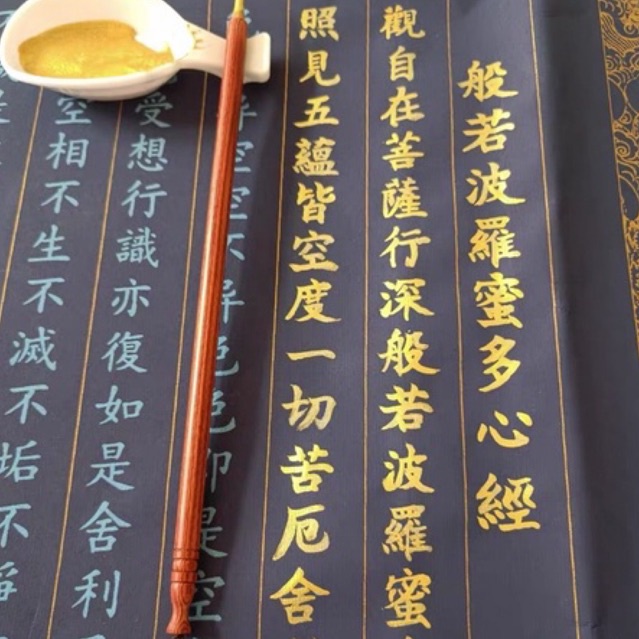 般若波羅蜜多心經
觀自在菩薩行深般若波羅蜜
照見五蘊皆空度一切苦厄舍
異空空不異色色即是空
受想行識亦復如是舍利
空相不生不滅不垢不淨